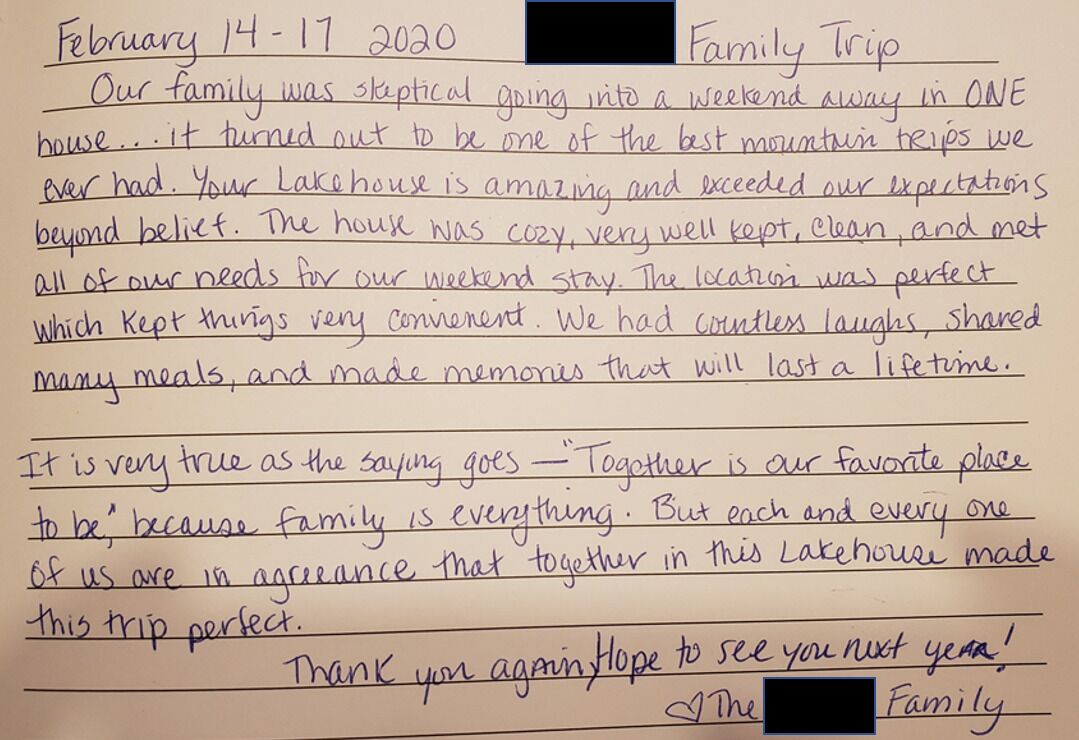 February 14-17 2020 Family Trip
Our family was skeptical going into a weekend away in ONE
house...it turned out to be one of the best mountain trips we
ever had. Your Lakehouse is amazing and exceeded our expectations
beyond belief. The house was cozy, very well kept, clean, and met
all of our needs for our weekend stay. The location was perfect
which kept things very convienent. We had countless laughs, shared
many meals, and made memories that will last a lifetime.
It is very true as the saying goes — "Together is our favorite place
to be", because family is everything. But each and every one
of us are in agreeance that together in this Lakehouse made
this trip perfect.
Thank you again, Hope to see you next year!
♡ The Family